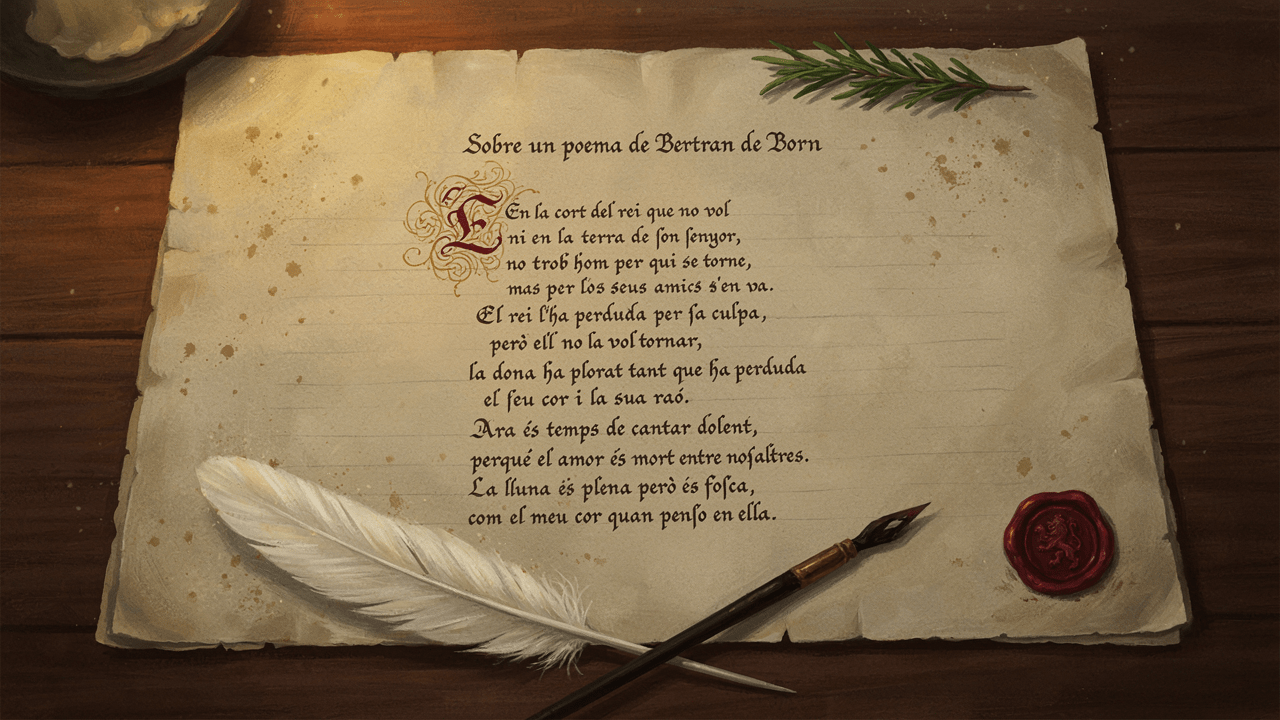 Sobre un poema de Bertran de Born
E En la cort del rei que no vol
ni en la terra de ſon ſenyor,
no trob hom per qui se torne,
mas per los seus amics s'en va.
El rei l'ha perduda per ſa culpa,
però ell no la vol tornar,
la dona ha plorat tant que ha perduda
el ſeu cor i la sua raó.
Ara és temps de cantar dolent,
perqué el amor és mort entre noſaltres.
La lluna és plena però és foſca,
com el meu cor quan penſo en ella.